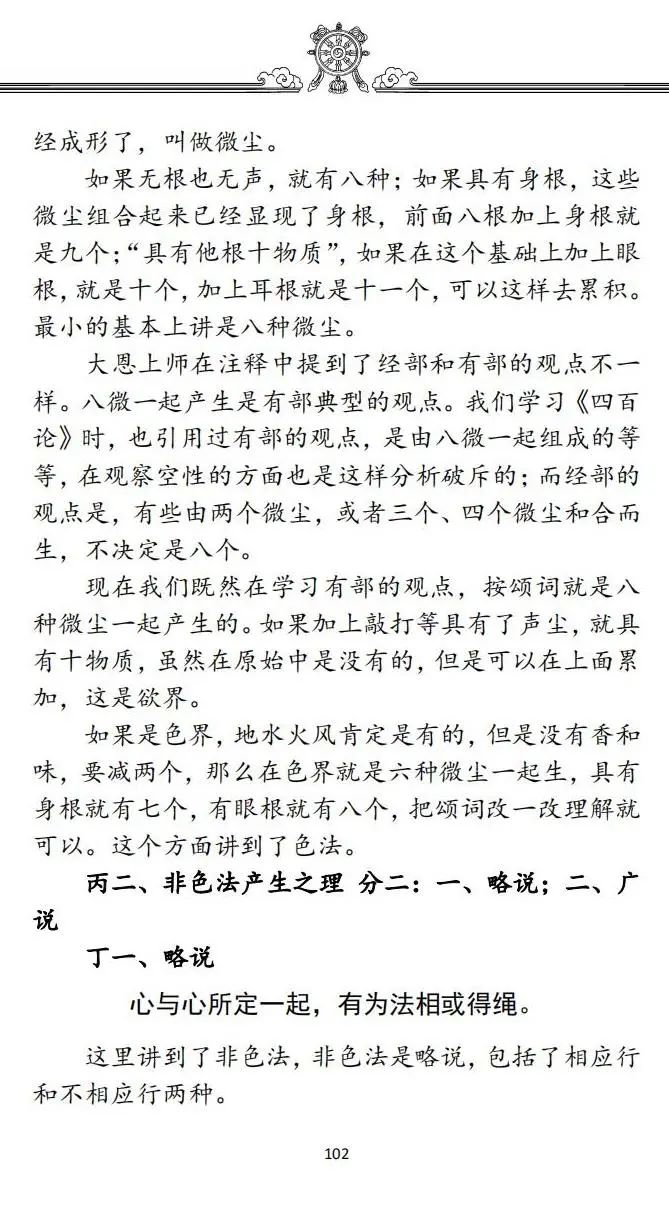 经成形了，叫做微尘。
如果无根也无声，就有八种；如果具有身根，这些
微尘组合起来已经显现了身根，前面八根加上身根就
是九个；“具有他根十物质”，如果在这个基础上加上眼
根，就是十个，加上耳根就是十一个，可以这样去累积。
最小的基本上讲是八种微尘。
大恩上师在注释中提到了经部和有部的观点不一
样。八微一起产生是有部典型的观点。我们学习《四百
论》时，也引用过有部的观点，是由八微一起组成的等
等，在观察空性的方面也是这样分析破斥的；而经部的
观点是，有些由两个微尘，或者三个、四个微尘和合而
生，不决定是八个。
现在我们既然在学习有部的观点，按颂词就是八
种微尘一起产生的。如果加上敲打等具有了声尘，就具
有十物质，虽然在原始中是没有的，但是可以在上面累
加，这是欲界。
如果是色界，地水火风肯定是有的，但是没有香和
味，要减两个，那么在色界就是六种微尘一起生，具有
身根就有七个，有眼根就有八个，把颂词改一改理解就
可以。这个方面讲到了色法。
丙二、非色法产生之理 分二：一、略说；二、广
说
丁一、略说
心与心所定一起，有为法相或得绳。
这里讲到了非色法，非色法是略说，包括了相应行
和不相应行两种。
102